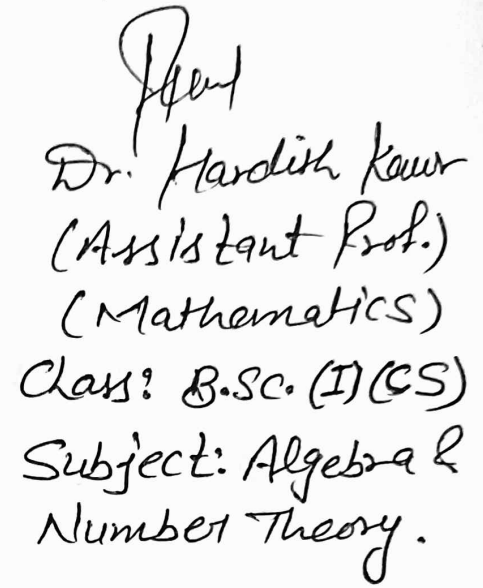 Dr. Hardish Kaur
(Assistant Prof.)
(Mathematics)
Class: B.Sc. (I) (CS)
Subject: Algebra &
Number Theory.